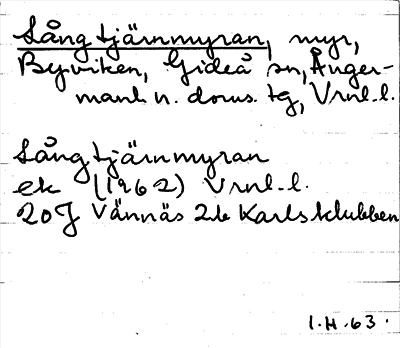 Långtjärnmyran, myr,
Byviken, Gideå sn, Ånger-
manl. n. doms. tg, Vrnl. l.
Långtjärnmyran
ek (1962) Vrnl. l.
20J Vännäs 2b Karlsklubben
I.H.63.